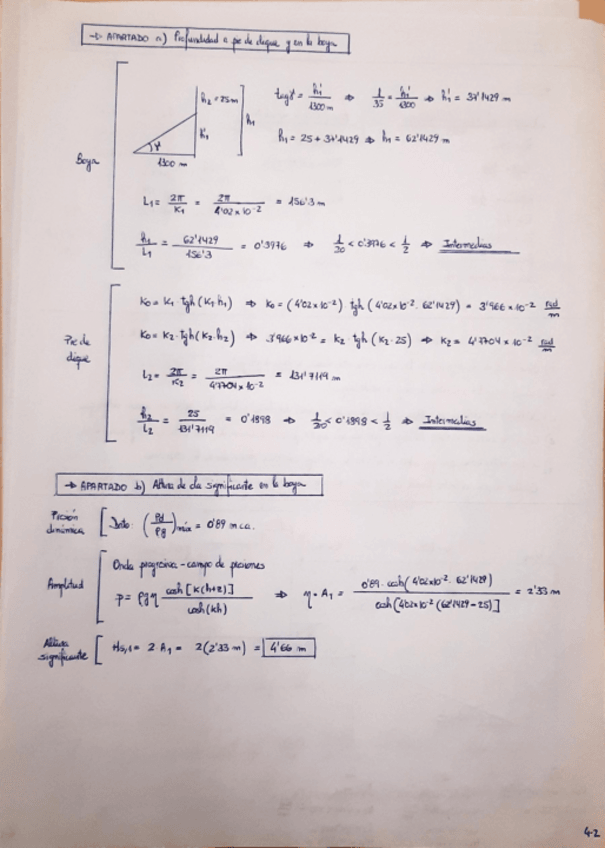 → APARTADO a) Profundidad a pie de dique y en la boya
Boya
h₂ = 25m
h₁'
h₁
γ
1300 m
tagγ = h₁'/1300m ⇒ 1/35 = h₁'/1300 ⇒ h₁' = 37'1429 m
h₁ = 25 + 37'1429 ⇒ h₁ = 62'1429 m
L₁ = 2π/K₁ = 2π/4'02x10⁻² = 156'3 m
h₁/L₁ = 62'1429/156'3 = 0'3976 ⇒ 1/20 < 0'3976 < 1/2 ⇒ Intermedias
Pie de dique
K₀ = K₁ · tgh(K₁h₁) ⇒ K₀ = (4'02x10⁻²) · tgh (4'02x10⁻² · 62'1429) = 3'966 x 10⁻² rad/m
K₀ = K₂ · tgh(K₂·h₂) ⇒ 3'966 x 10⁻² = K₂ · tgh (K₂ · 25) ⇒ K₂ = 4'7704 x 10⁻² rad/m
L₂ = 2π/K₂ = 2π/4'7704 x 10⁻² = 131'7119 m
h₂/L₂ = 25/131'7119 = 0'1898 ⇒ 1/20 < 0'1898 < 1/2 ⇒ Intermedias
→ APARTADO b) Altura de ola significante en la boya
Presión dinámica
Dato: (Pd/ρg)máx = 0'89 m c.a.
Amplitud
Onda progresiva - campo de presiones
p = ρgη cosh[K(h+z)]/cosh(kh) ⇒ η = A₁ = 0'89 · cosh(4'02x10⁻² · 62'1429)/cosh[4'02x10⁻² (62'1429 - 25)] = 2'33 m
Altura significante
Hs,₁ = 2 A₁ = 2(2'33 m) = 4'66 m
4.2